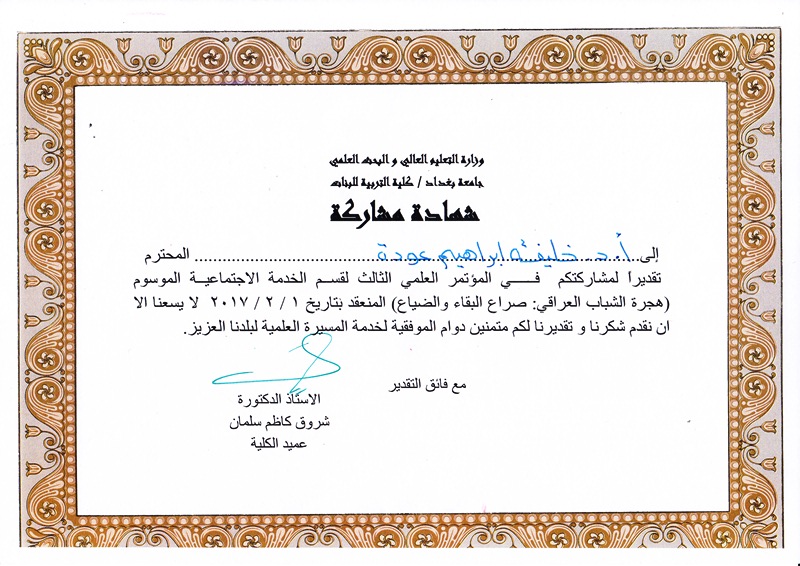 وزارة التعليم العالي و البحث العلمي
جامعة بغداد / كلية التربية للبنات
شهادة مشاركة
إلى أ.د. خليفة ابراهيم عودة المحترم
تقديراً لمشاركتكم في المؤتمر العلمي الثالث لقسم الخدمة الاجتماعية الموسوم
(هجرة الشباب العراقي: صراع البقاء والضياع) المنعقد بتاريخ ١ / ٢ / ٢٠١٧ لا يسعنا الا
ان نقدم شكرنا و تقديرنا لكم متمنين دوام الموفقية لخدمة المسيرة العلمية لبلدنا العزيز.
مع فائق التقدير
الاستاذ الدكتورة
شروق كاظم سلمان
عميد الكلية